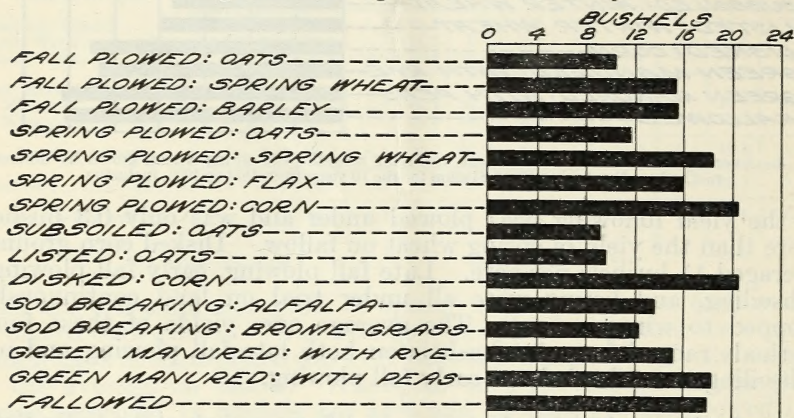 BUSHELS
0 4 8 12 16 20 24
FALL PLOWED: OATS
FALL PLOWED: SPRING WHEAT
FALL PLOWED: BARLEY
SPRING PLOWED: OATS
SPRING PLOWED: SPRING WHEAT
SPRING PLOWED: FLAX
SPRING PLOWED: CORN
SUBSOILED: OATS
LISTED: OATS
DISKED: CORN
SOD BREAKING: ALFALFA
SOD BREAKING: BROME-GRASS
GREEN MANURED: WITH RYE
GREEN MANURED: WITH PEAS
FALLOWED